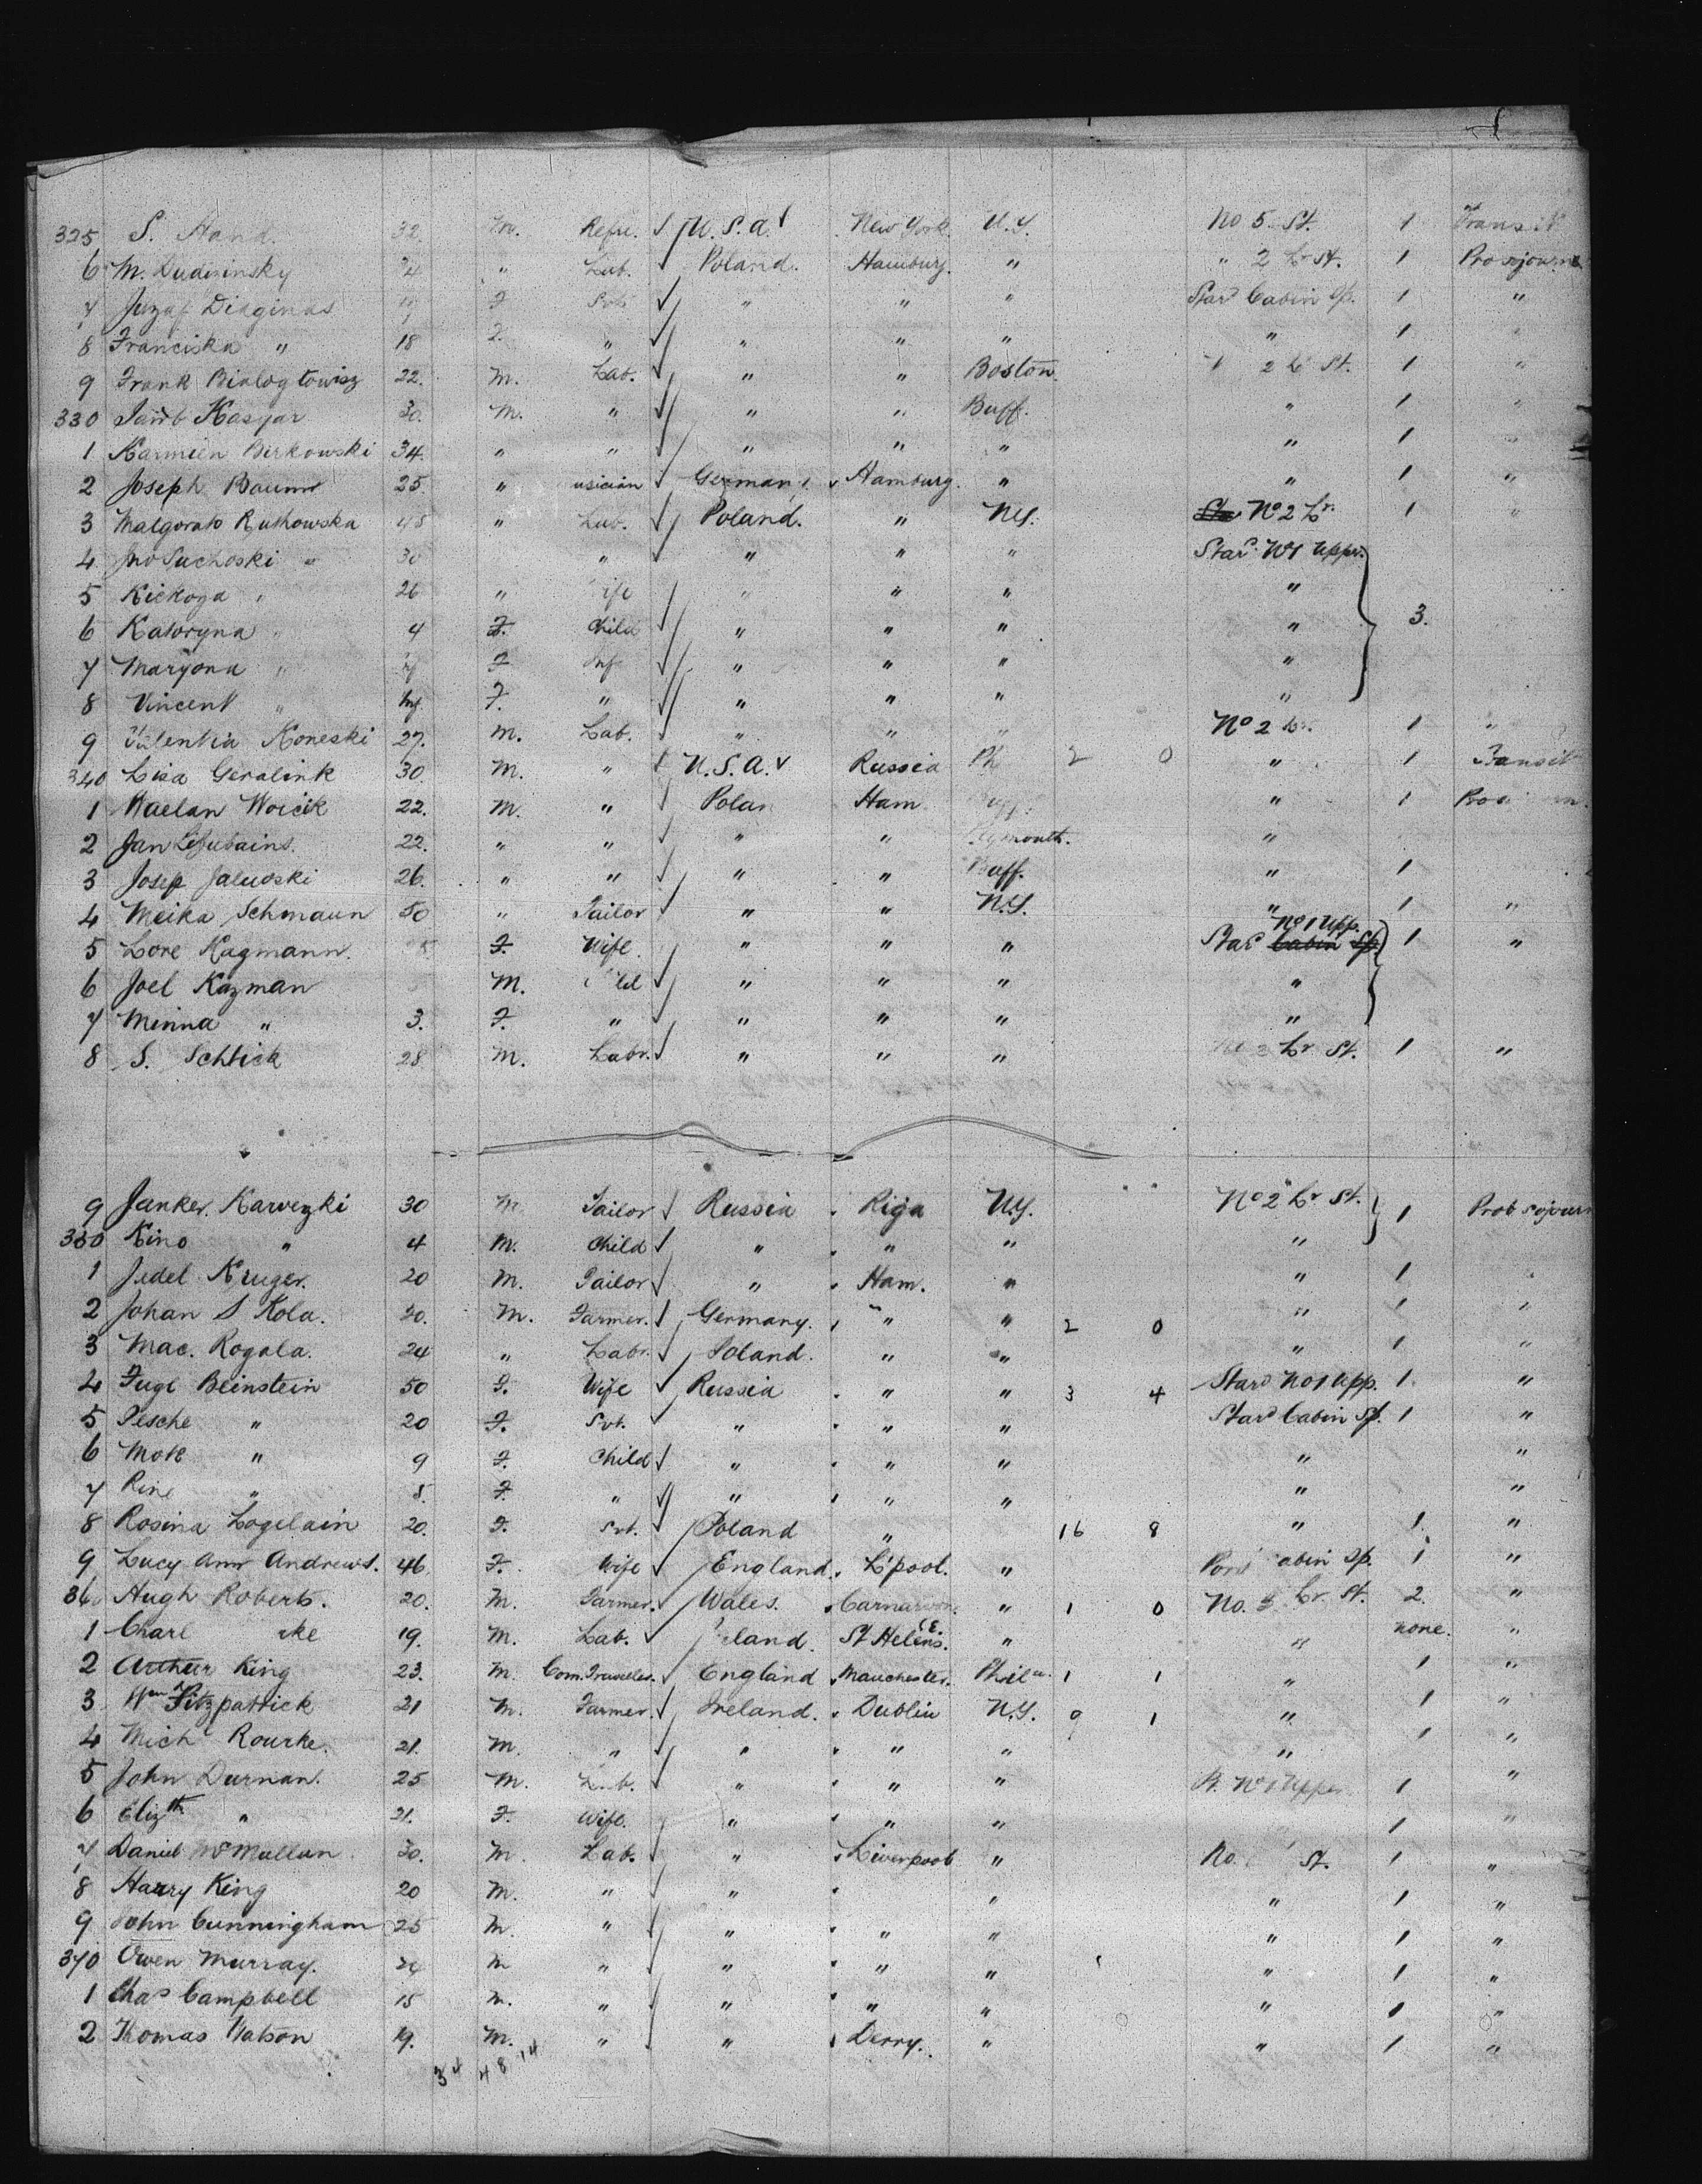 325 S. Hand. 32. m. U.S.A. New York. N.Y. No 5 St. 1 Transit
6 M. Dudirinsky 24 " Lab. Poland. Hamburg. " " 2 Lr St. 1 Pro sojourn
7 Juzaf Diaginas F " " " Star Cabin Sp. 1 "
8 Franciska " 18 F. " " " " " 1
9 Frank Bialogtowisz 22. M. Lab. " " Boston. 2 Lr St. 1 "
330 Kaspar 30. M. " " " Buff. " 1 "
1 Karmien Birkowski 34. " " " " " " 1 "
2 Joseph Baumr 25. " usician German Hamburg. " " 1 "
3 Malgorato Ruthowska 45 " Lab. Poland. " N.Y. No 2 Lr. 1 "
4 Jno Suchoski " 30 " " " " Star No 1 Upper.
5 Kickoya " 26 " ife " " " "
6 Katoryna " 4 F. Child " " " " 3.
7 Maryona " Inf F Inf " " " "
8 Vincent " Inf. F. " " " " "
9 Koneski 27. M. Lab. " " " No 2 Lr. 1 "
340 Lisa Geralink 30. M. " U.S.A. Russia Ph 2 0 " 1 Transit
1 Waelan Woicik 22. M. " Polan Ham. " 1
2 Jan 22. " " " " lymouth. "
3 Josep Jaluoski 26. " " " " Buff. " 1
4 Meika Schmaun 50 " Tailor " " N.Y. " 1 "
No 1 Upp.
5 Lore Kagmann. F. Wife. " " " Star Cabin Sp. 1 "
6 Joel Kazman M. " " " "
7 Minna " 3. F. " " " " "
8 S. Schlick 28 M. Labr. " " " Lr St. 1 "
9 Janker. Karvezki 30 M. Tailor Russia Riga N.Y. No 2 Lr St. 1 Prob sojourn
350 Kino " 4 M. Child " " " "
1 Jedel Kruger. 20 M. Tailor " Ham. " " 1
2 Johan S Kola. 20. M. Farmer. Germany. " " 2 0 " 1 "
3 Mac. Rogala. 24 " Labr. Poland. " " " 1 "
4 Fuge Beinstein 50 F. Wife Russia " " 3 4 Star No 1 Upp. 1 "
5 Pesche " 20 F. Svt. " " " Star Cabin Sp. 1 "
6 " 9 F. Child " " " " "
7 Rine " 8. F. " " " " " "
8 Rosina Logelain 20. F. Svt. Poland " 16 8 " 1. "
9 Lucy Ann Andrews. 46 F. Wife England. L'pool. " abin Sp. 1 "
36 Hugh Roberts. 20. M. Farmer. Wales. Carnarvon. " 1 0 No. 3 Lr St. 2. "
1 Charl ke 19. M. Lab. eland. St Helens. " " none. "
2 Arthur King 23. M. Com. Traveler. England Manchester. Phila. 1 1 " 1 "
3 Wm Fitzpatrick 21 M. Farmer. Ireland. Dublin N.Y. 9 1 " 1 "
4 Michl Rourke. 21. M. " " " " " 1 "
5 John Durnan. 25 M. Lab. " " " P. No 1 Upper 1 "
6 Elizth " 21. F. Wife. " " " 1 "
7 Daniel McMullan 30. M. Lab. " Liverpool " No. St. 1 "
8 Harry King 20 M. " " " " 1 "
9 John Cunningham 25 M. " " " " " 1 "
370 Owen Murray. 24 M " " " " " 1 "
1 Chas Campbell 15 M. " " " " " 1 "
2 Thomas Watson 19. M. " " Derry. " " 1 "
34 48 14